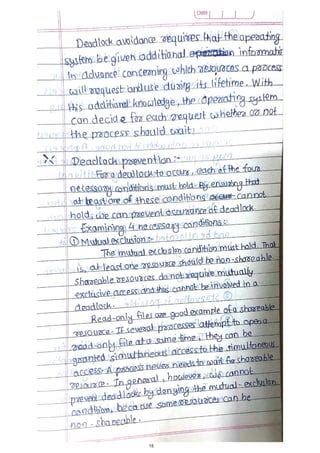 Deadlock avoidance requires that the operating
system be given additional informatio
in advance concerning which resources a process
will request and use during its lifetime. With
this additional knowledge, the operating system
can decide for each request whether or not
the process should wait.
X Deadlock prevention :-
For a deadlock to occurs, each of the four
necessary conditions must hold. By ensuring that
at least one of these conditions cannot
hold, we can prevent occurance of deadlock.
Examining 4 necessary conditions:-
① Mutual exclusion :-
The mutual exclusion condition must hold. That
is, at least one resource should be non-shareable.
Shareable resources do not require mutually
exclusive access and thus cannot be involved in a
deadlock.
Read-only files are good example of a shareable
resource. If several processes attempt to open a
read-only file at a same time, they can be
granted simultaneous access to the simultaneous
access. A process never needs to wait for shareable
resource. In general, however, we cannot
prevent deadlocks by denying the mutual-exclusion
condition, because some resources can be
non-shareable.